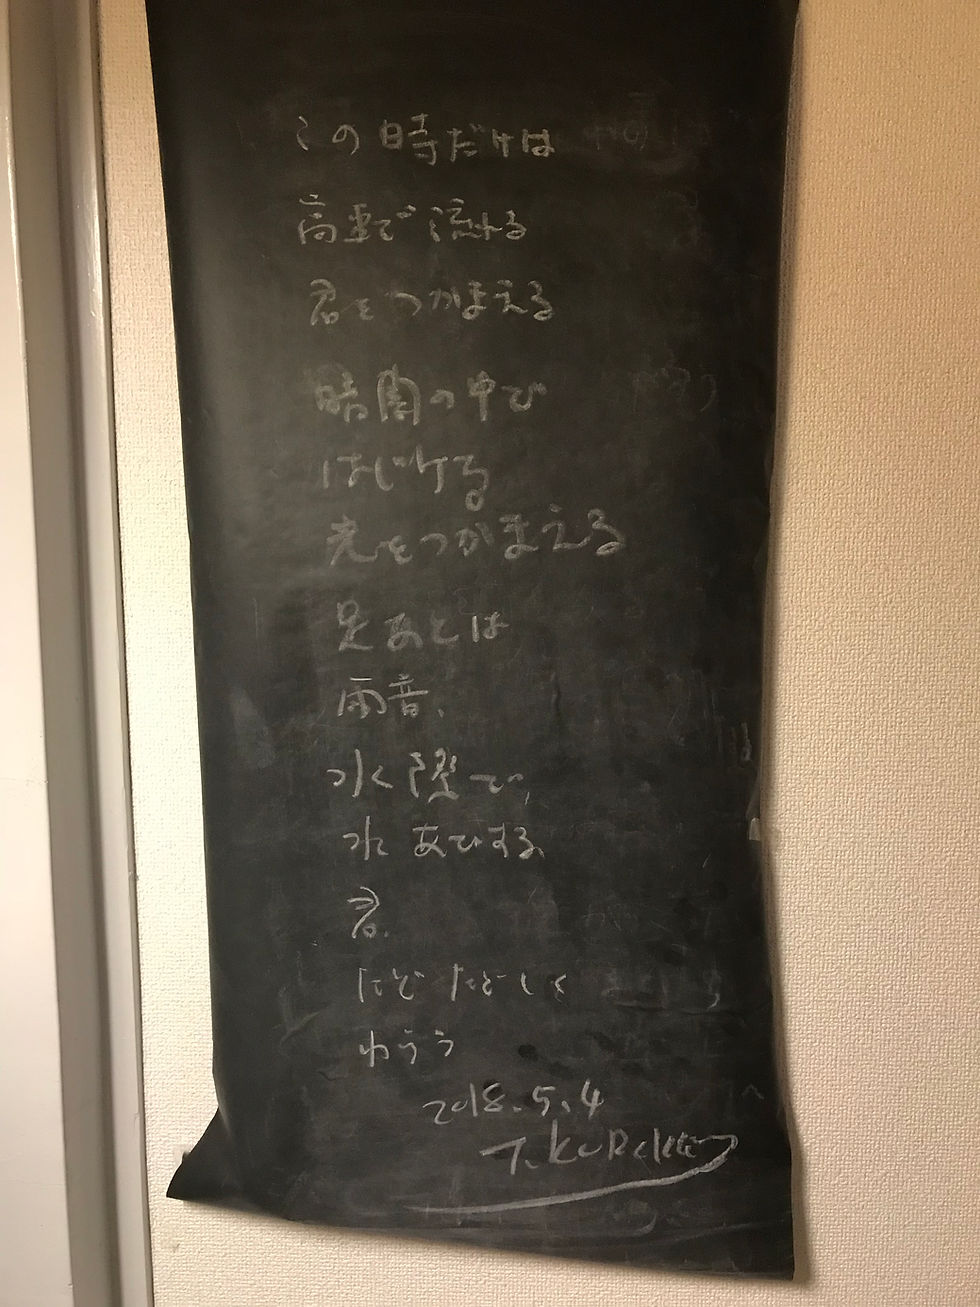 この時だけは
高車で流れる
君をつかまえる
暗闇の中で
はじける
光をつかまえる
足あとは
雨音、
水陸で、
水あびする、
君、
たどたどしく
わらう
2018.5.4
T.